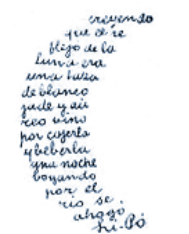 creyendo
que el re
flejo de la
luna era
una taza
de blanco
jade y áu
reo vino
por cogerla
y beberla
una noche
bogando
por el
río se
ahogó
Li-Pó